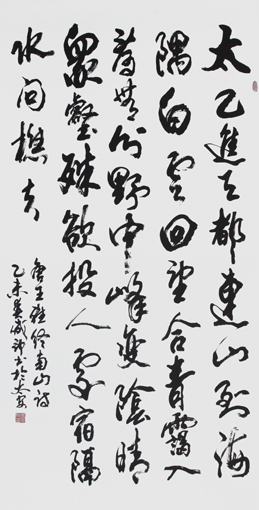 太乙進天都連山到海
隅白雲回望合青靄入
看無分野中峰變陰晴
眾壑殊欲投人處宿隔
水問樵夫
唐王維終南山詩
乙未